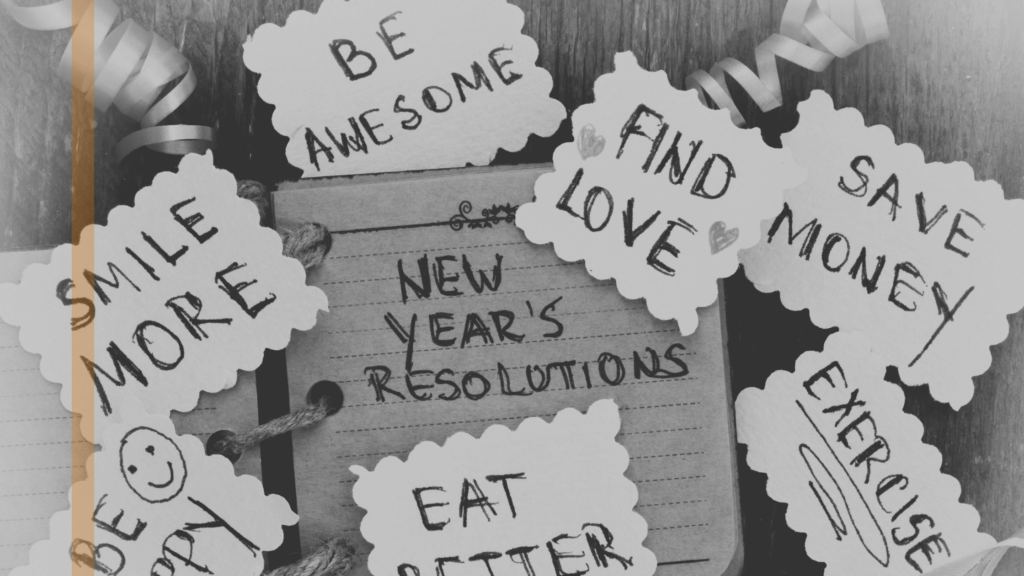 BE
AWESOME
FIND
LOVE
SAVE
MONEY
SMILE
MORE
NEW
YEAR'S
RESOLUTIONS
EXERCISE
BE
EAT
BETTER